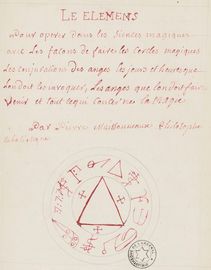 LE ELEMENS
Pour operer dans les siences magiques
avec Les facons de faire les cercles magiques
Les conjurations des anges les jours et heures que
Lon doit les invoquer, Les anges que lon doit faire
venir et tout ce qui concerne La Magie
Par Pierre Philosophe